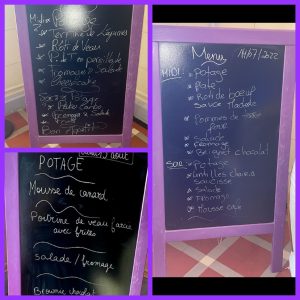 Midi: Potage
* Terrine de Légumes
* Rôti de Veau
* Fromage / Salade
* Cheesecake
Soir: Potage
* Fromage / Salade
* Fruit
Bon Appétit
POTAGE
Mousse de canard
Poitrine de veau farcie
avec frites
salade / fromage
Brownie chocolat
Menu 14/07/2022
MIDI: * Potage
* Pâté
* Rôti de boeuf
sauce Madère
* Pommes de terre
* Salade
* Fromage
* chocolat
SOIR: * Potage
* Lentilles
saucisse
* Salade
* Fromage
* Mousse